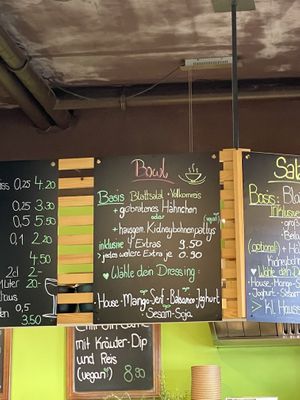 0,25 4.20
0,25 3.30
0,5 5.50
0,1 2.20
4.50
2cl - 2.-
0,5 -
3.50
Bowl
Basis Blattsalat + Vollkornreis
+ gebratenes Hähnchen
oder
+ hausgem. Kidneybohnenpattys
(vegan)
inklusive 4 Extras 9.50
> jedes weitere Extra je 0.90
Wähle dein Dressing:
House · Mango-Senf · Balsamico · Joghurt
Sesam-Soja
Sala
Basis: Bla
inklusive
+ ge
oder
(optional) + Hä
Kidneybohn
Wähle dein D
House · Mango-S
Joghurt · Sesam
> KL Hauss
Chili Sin Carne
mit Kräuter-Dip
und Reis
(vegan!) 8.90